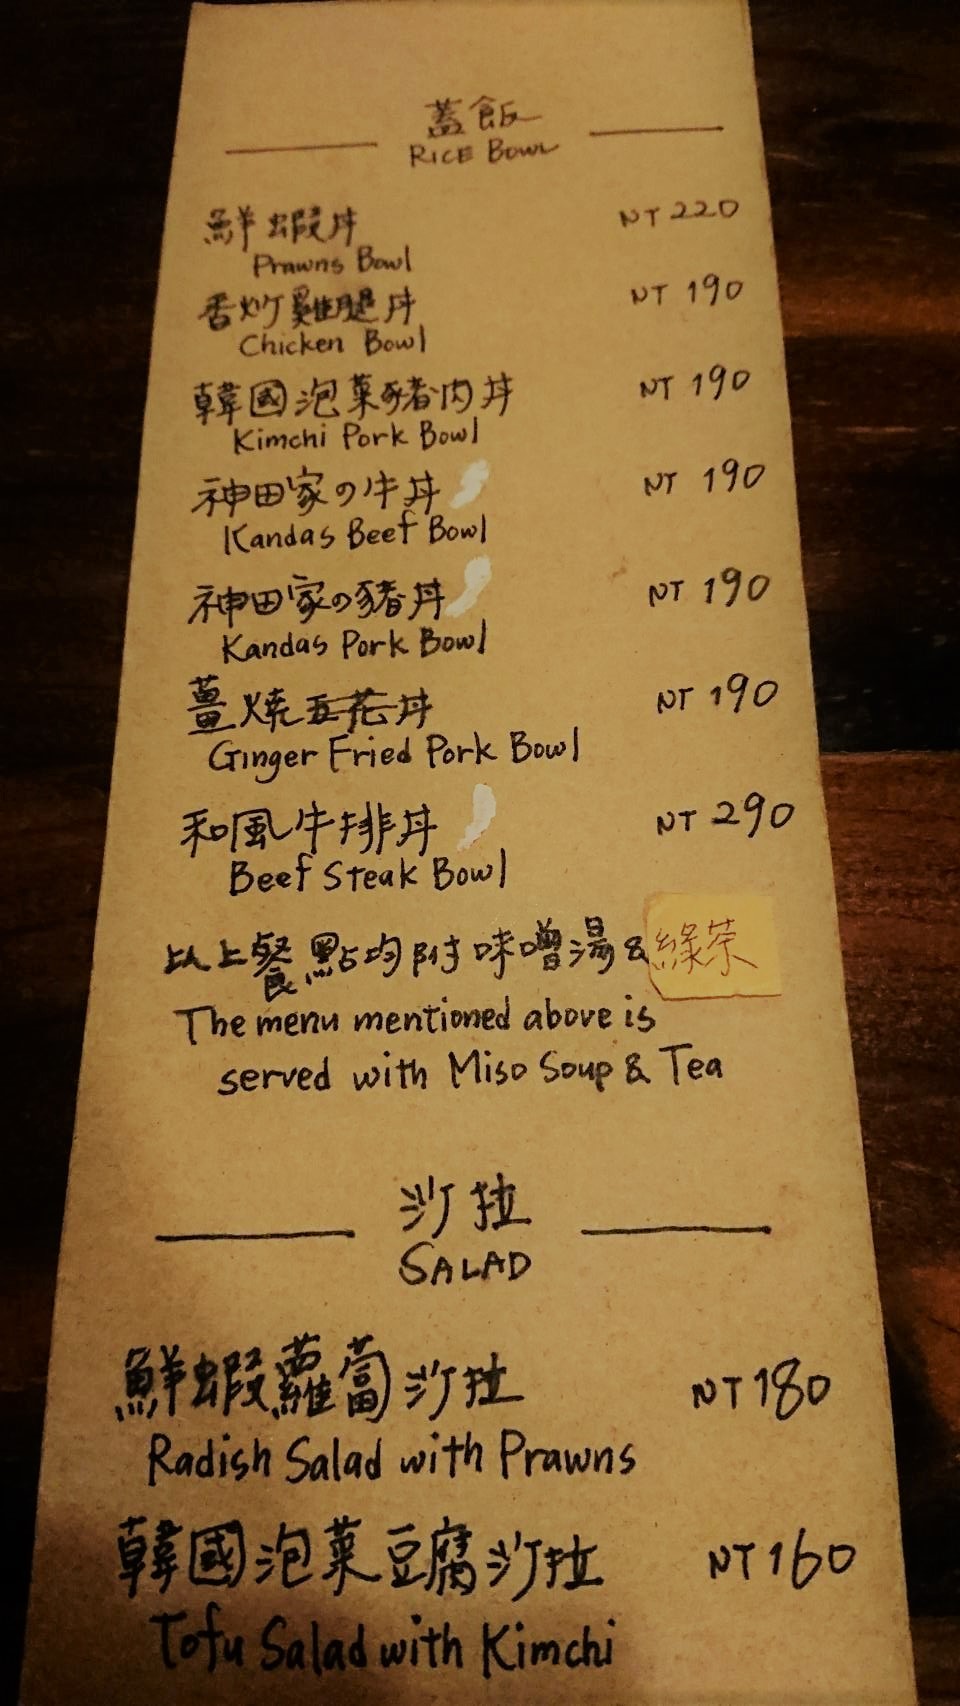 蓋飯
RICE BOWL
鮮蝦丼 NT 220
Prawns Bowl
香炒雞腿丼 NT 190
Chicken Bowl
韓國泡菜豬肉丼 NT 190
Kimchi Pork Bowl
神田家の牛丼 NT 190
Kandas Beef Bowl
神田家の豬丼 NT 190
Kandas Pork Bowl
薑燒五花丼 NT 190
Ginger Fried Pork Bowl
和風牛排丼 NT 290
Beef Steak Bowl
以上餐點均附味噌湯&綠茶
The menu mentioned above is
served with Miso Soup & Tea
沙拉
SALAD
鮮蝦蘿蔔沙拉 NT 180
Radish Salad with Prawns
韓國泡菜豆腐沙拉 NT 160
Tofu Salad with Kimchi